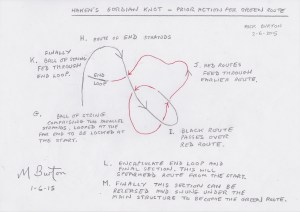 HAKEN'S GORDIAN KNOT - PRIOR ACTION FOR GREEN ROUTE
MICK BURTON
1-6-2015
H. ROUTE OF END STRANDS
FINALLY
K. BALL OF STRING
FED THROUGH
END LOOP.
END
LOOP
J. RED ROUTES
FEED THROUGH
EARLIER ROUTE.
G. BALL OF STRING
COMPRISING TWO PARALLEL
STRANDS, LOOPED AT THE
FAR END TO BE LOCATED AT
THE START.
I. BLACK ROUTE
PASSES OVER
RED ROUTE.
M Burton
1-6-15
L. ENCAPSULATE END LOOP AND
FINAL SECTION, THIS WILL
SPEARHEAD ROUTE FROM THE START.
M. FINALLY THIS SECTION CAN BE
RELEASED AND SWUNG UNDER THE
MAIN STRUCTURE TO BECOME THE GREEN ROUTE.